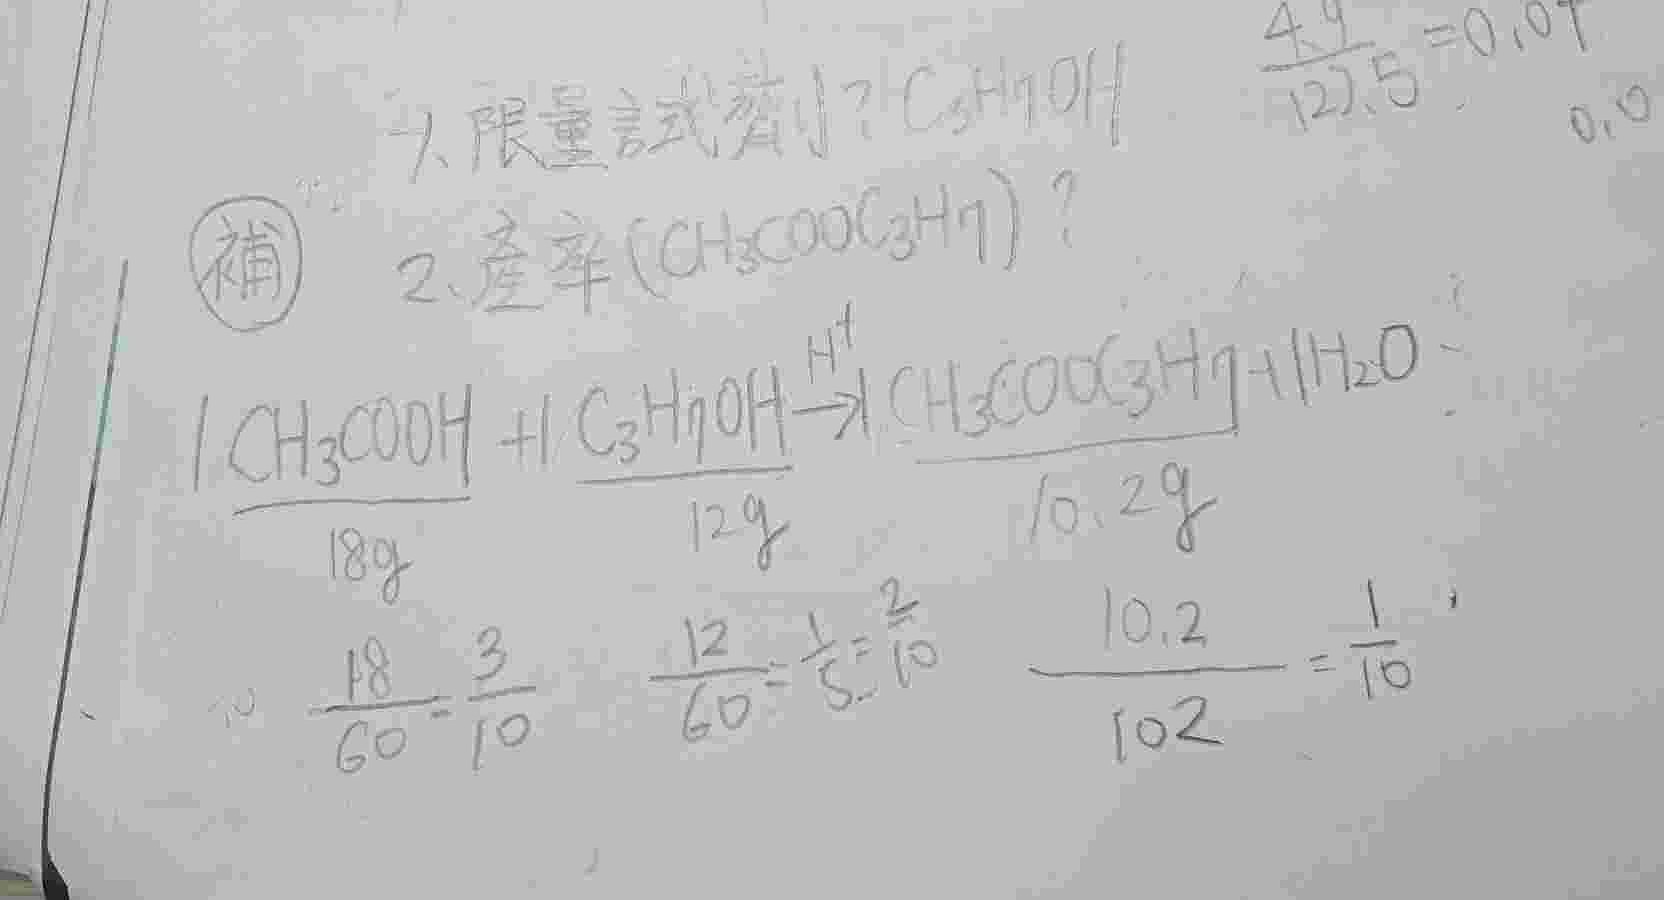 1、限量試劑? C3H7OH
補 2、產率(CH3COOC3H7)?
1CH3COOH +1C3H7OH H+ → 1CH3COOC3H7+1H2O
18g 12g 10.2g
18/60 = 3/10 12/60 = 1/5 = 2/10 10.2/102 = 1/10